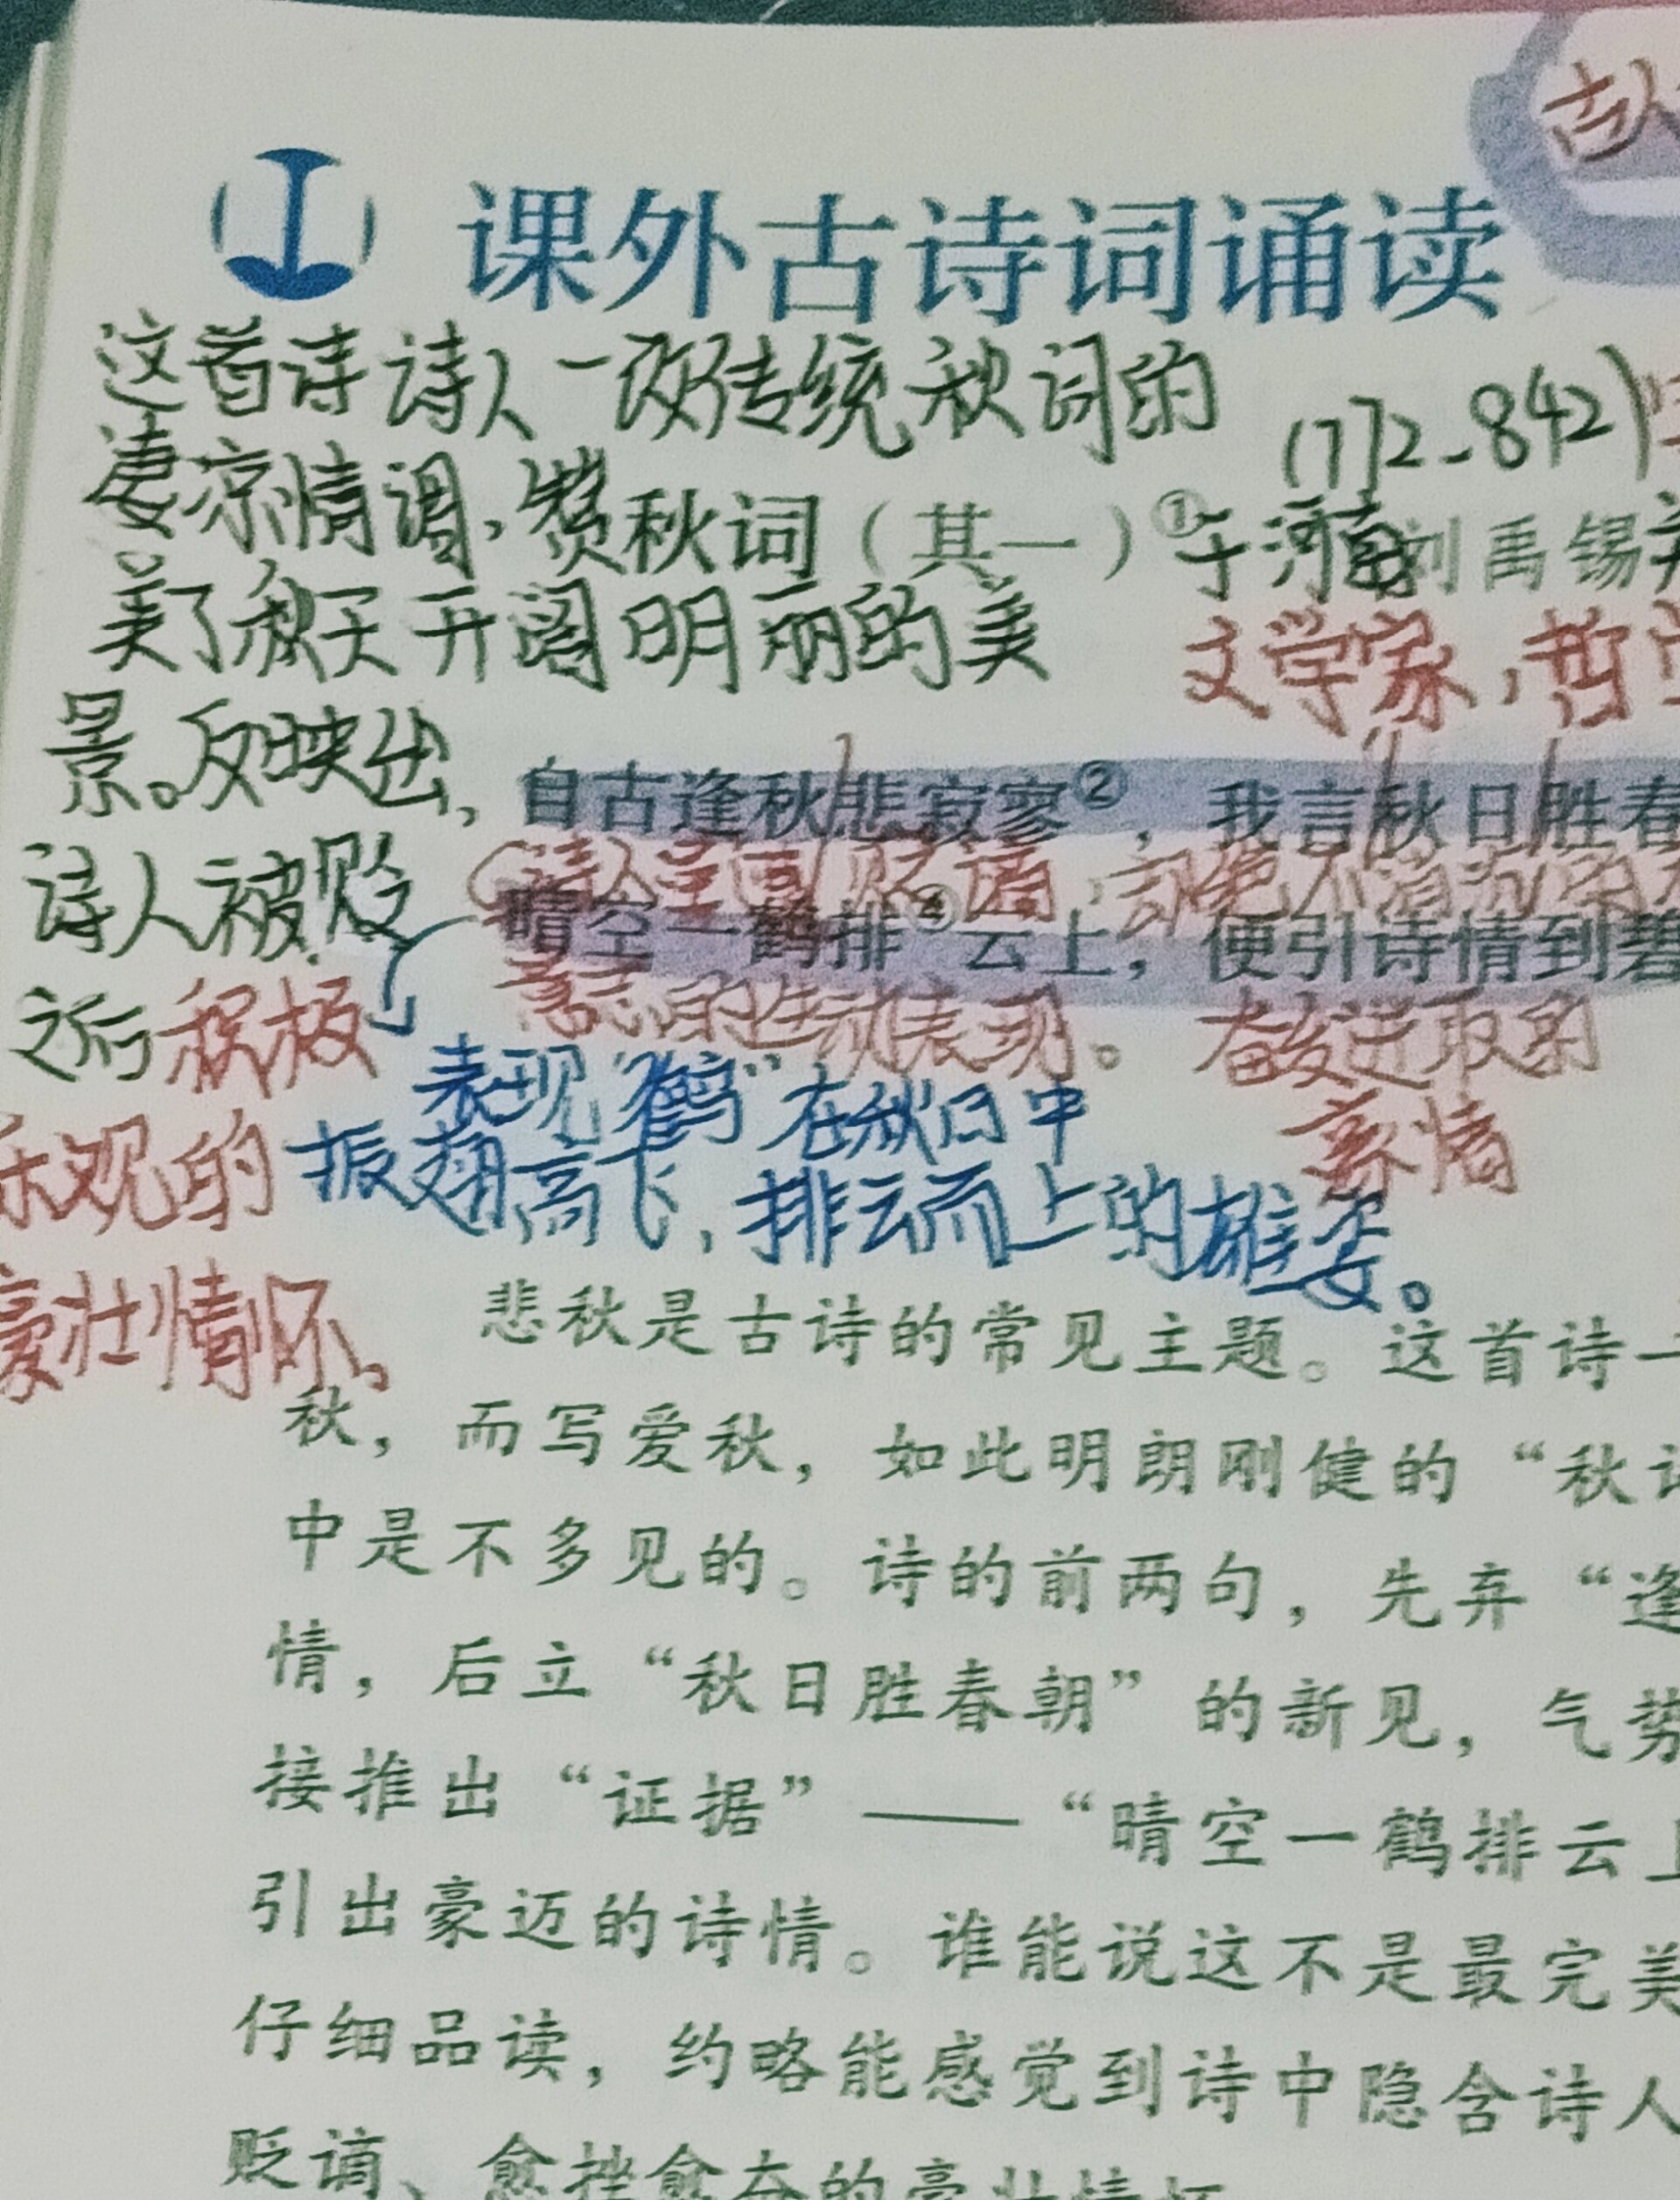 古人
课外古诗词诵读
这首诗诗人一改传统秋词的
凄凉情调，赞
美了秋天开阔明丽的美
景。反映出
诗人被贬
之后积极
乐观的
豪壮情怀。
(772-842)
秋词（其一）①
于河南
刘禹锡
文学家，哲
自古逢秋悲寂寥②，我言秋日胜春
诗人呈
晴空一鹤排④云上，便引诗情到碧
意志的生动表现。
奋发进取的
豪情
表现“鹤”在秋日中
振翅高飞，排云而上的雄姿。
悲秋是古诗的常见主题。这首诗一
秋，而写爱秋，如此明朗刚健的“秋词
中是不多见的。诗的前两句，先弃“逢
情，后立“秋日胜春朝”的新见，气势
接推出“证据”——“晴空一鹤排云上
引出豪迈的诗情。谁能说这不是最完美
仔细品读，约略能感觉到诗中隐含诗人
贬谪、愈挫愈奋的豪壮情怀